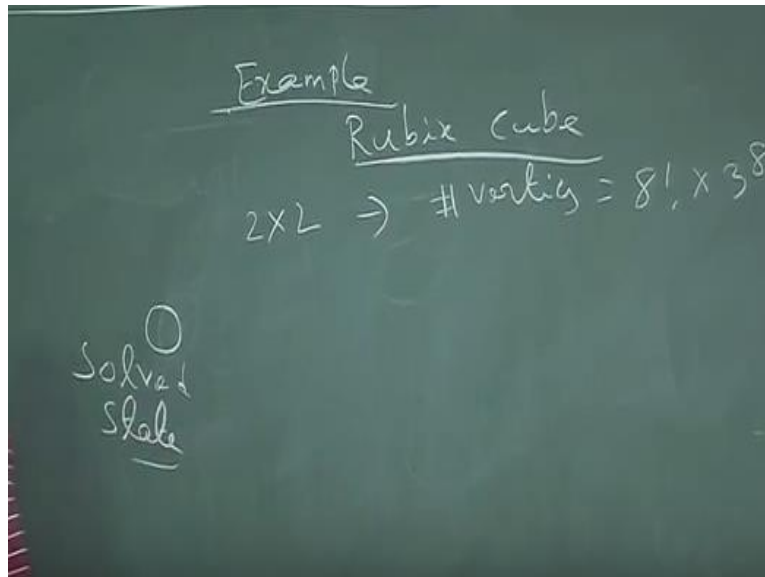 Example
Rubix cube
2x2 → # vertics = 8! x 3^8
Solved
State